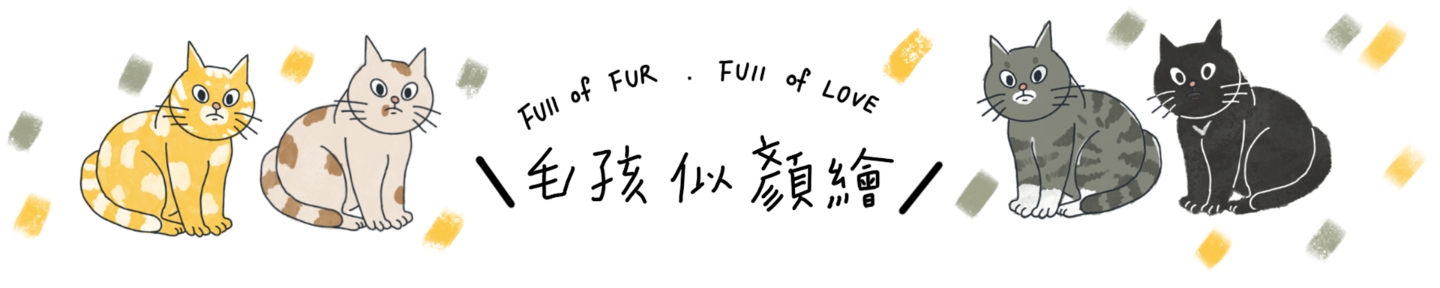 FUll of FUR . FUll of LOVE
\ 毛孩似顏繪 /